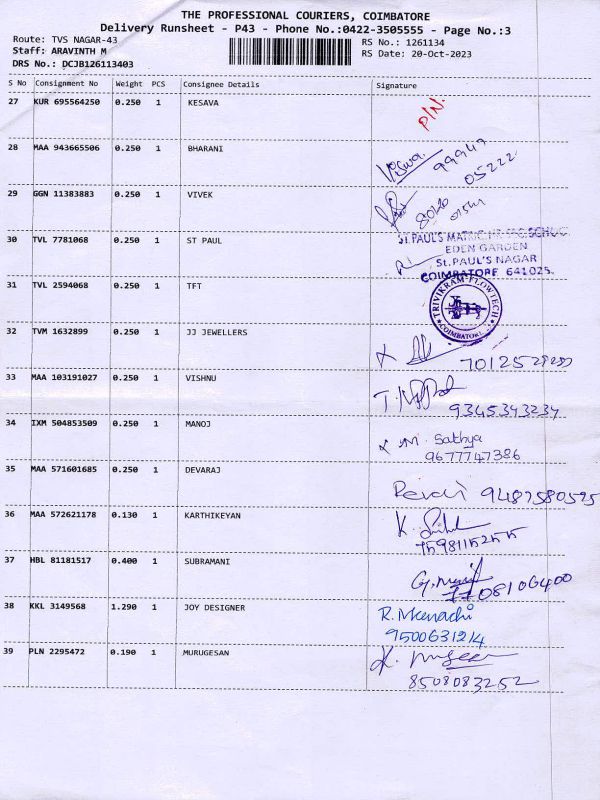 THE PROFESSIONAL COURIERS, COIMBATORE
Delivery Runsheet - P43 - Phone No.:0422-3505555 - Page No.:3
Route: TVS NAGAR-43
Staff: ARAVINTH M
DRS No.: DCJB126113403
RS No.: 1261134
RS Date: 20-Oct-2023
S No Consignment No Weight PCS Consignee Details Signature
27 KUR 695564250 0.250 1 KESAVA P/N.
28 MAA 943665506 0.250 1 BHARANI
05222
29 GGN 11383883 0.250 1 VIVEK
30 TVL 7781068 0.250 1 ST PAUL
St.PAUL'S
EDEN GARDEN
St.PAUL'S NAGAR
COIMBATORE 641025.
31 TVL 2594068 0.250 1 TFT
TRIVIKRAM FLOWTECH
COIMBATORE
32 TVM 1632899 0.250 1 JJ JEWELLERS
33 MAA 103191027 0.250 1 VISHNU
9345343234
34 IXM 504853509 0.250 1 MANOJ
M. Sathya
9677747386
35 MAA 571601685 0.250 1 DEVARAJ
9487580595
36 MAA 572621178 0.130 1 KARTHIKEYAN
37 HBL 81181517 0.400 1 SUBRAMANI
38 KKL 3149568 1.290 1 JOY DESIGNER
R. Meenachi
9500631214
39 PLN 2295472 0.190 1 MURUGESAN
8508083252